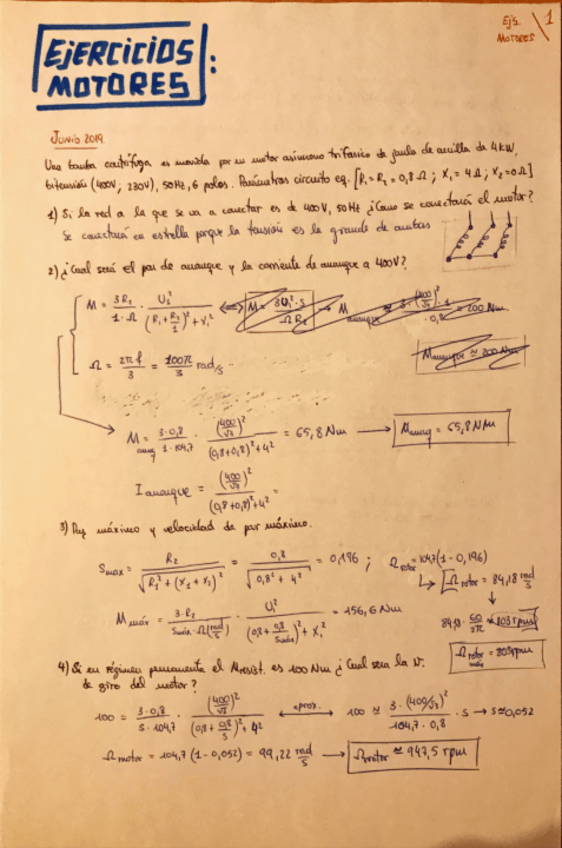 Ej's. 1
MOTORES
EJERCICIOS
MOTORES:
JUNIO 2019
Una bomba centrífuga es movida por un motor asíncrono trifásico de jaula de ardilla de 4 kW,
bitensión (400V; 230V), 50Hz, 6 polos. Parámetros circuito eq. [R₁=R₂'=0,8 Ω; X₁=4Ω; X₂=0Ω]
1) Si la red a la que se va a conectar es de 400V, 50Hz ¿Cómo se conectará el motor?
Se conectará en estrella porque la tensión es la grande de ambas
2) ¿Cual será el par de arranque y la corriente de arranque a 400V?
M = 3R₂/1·Ω · U₁²/((R₁+R₂/1)²+X₁²) ⟺ M = 3U₁²·S/ΩR₂ → M arranque ≃ 3·(400/√3)²·1/·0,8 = 200 Nm.
Ω = 2πf/3 = 100π/3 rad/s
Marranque ≃ 200 Nm
M arranq = 3·0,8/1·104,7 · (400/√3)²/((0,8+0,8)²+4²) = 65,8 Nm → Marranq = 65,8 Nm
I arranque = (400/√3)²/((0,8+0,8)²+4²) =
3) Par máximo y velocidad de par máximo.
Smax = R₂/√(R₁²+(X₁+X₂)²) = 0,8/√(0,8²+4²) = 0,196 ; Ωrotor = 104,7(1-0,196)
↳ Ωrotor = 84,18 rad/s
Mmáx = 3·R₂/Smáx·Ω(rad/s) · U₁²/((0,8+0,8/Smáx)²+X₁²) = 156,6 Nm
84,18·60/2π = 803 rpm
Ωrotor máx = 803 rpm
4) Si en régimen permanente el Mresist. es 100 Nm ¿Cual sera la v.
de giro del motor?
100 = 3·0,8/S·104,7 · (400/√3)²/((0,8+0,8/S)²+4²) ⟷ aprox. 100 ≃ 3·(400/√3)²/104,7·0,8 · S → S≃0,052
Ωmotor = 104,7(1-0,052) = 99,22 rad/s → Ωrotor ≃ 947,5 rpm